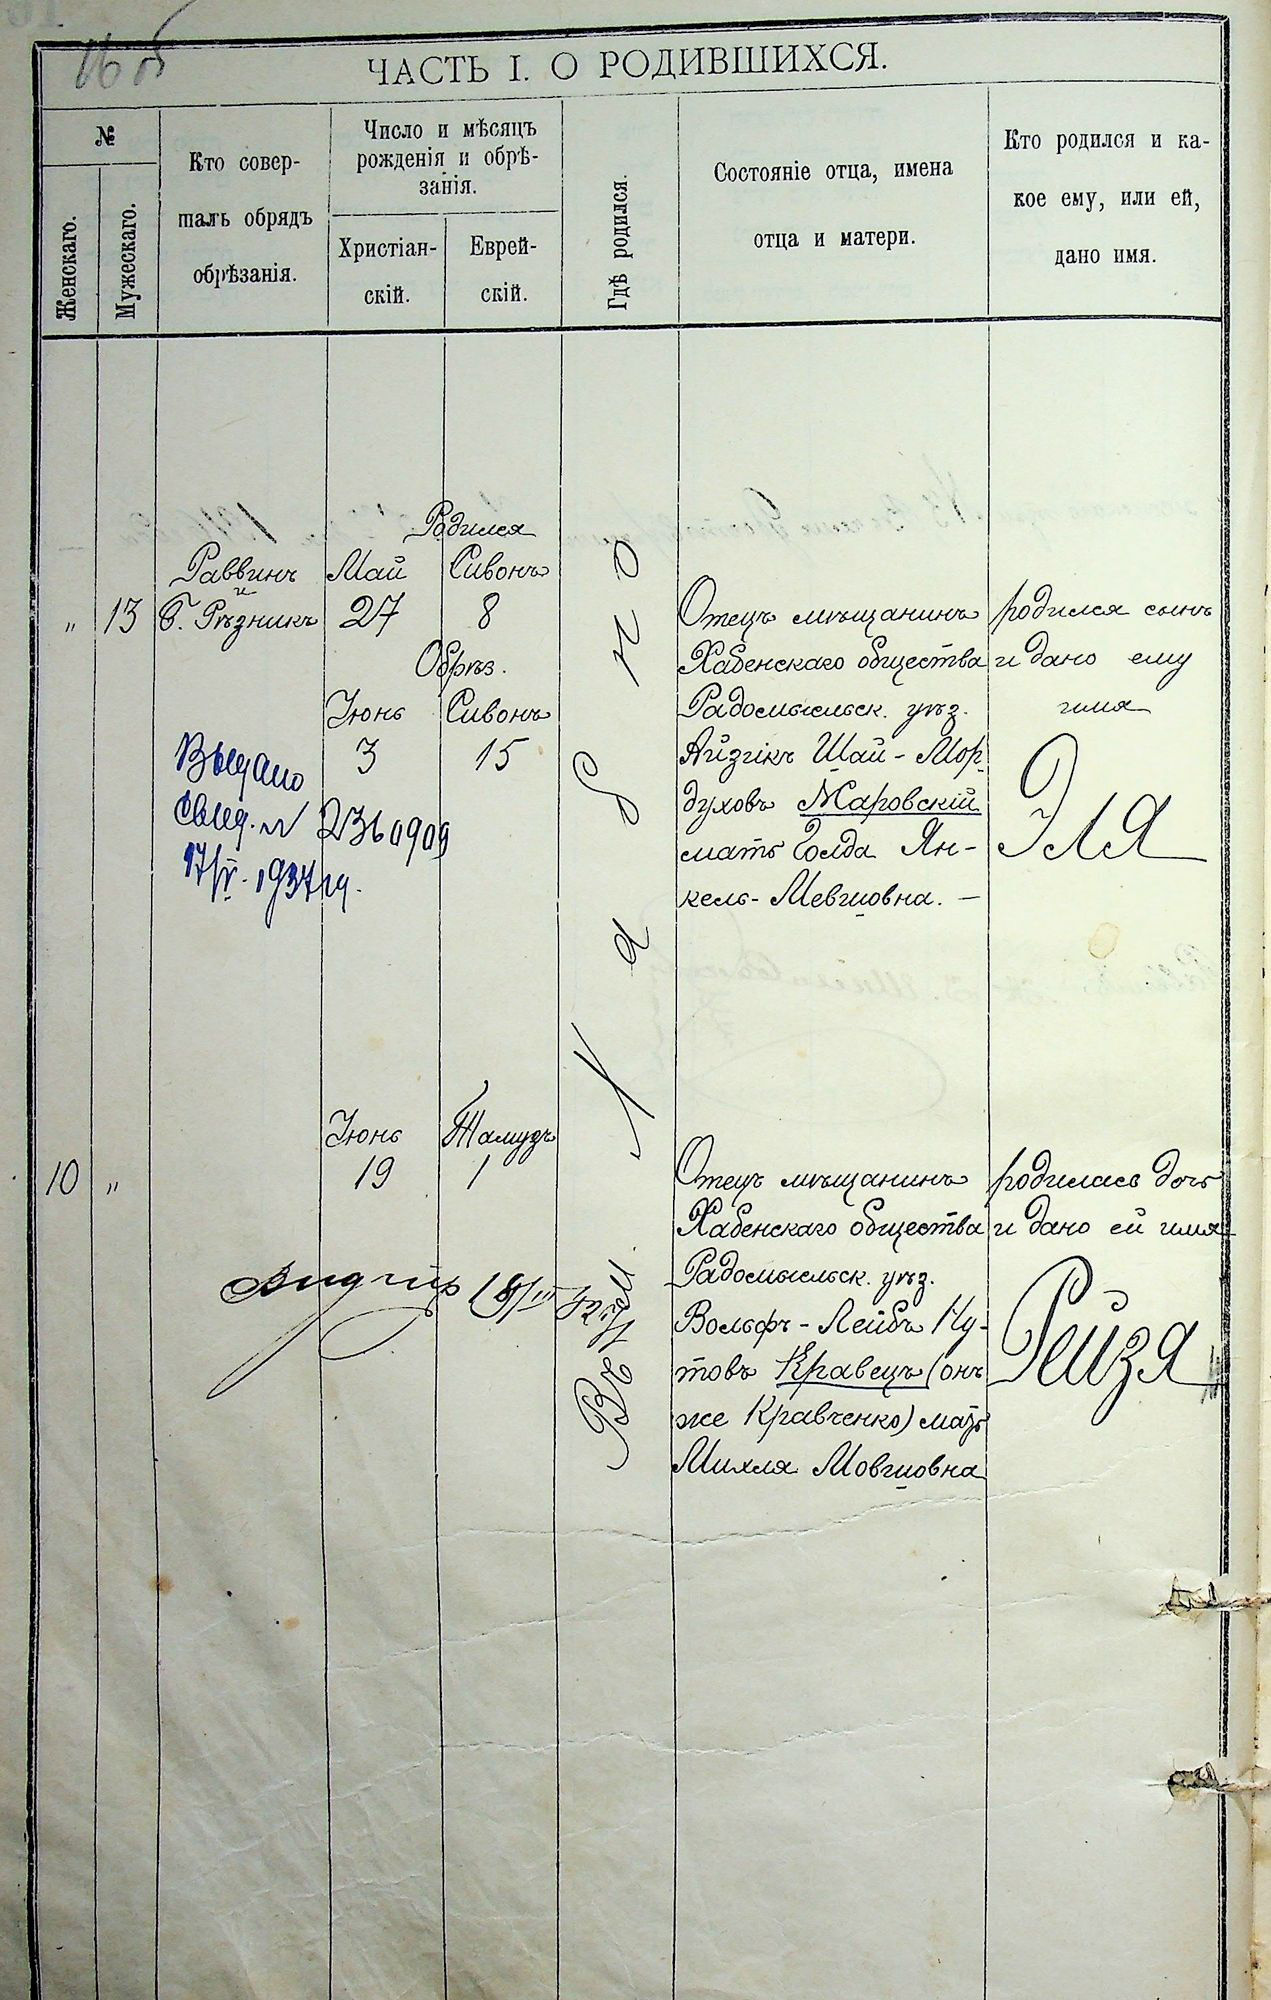 16 об
ЧАСТЬ I. О РОДИВШИХСЯ.
№
Женскаго.
Мужескаго.
Кто совер-
шалъ обрядъ
обрѣзанія.
Число и мѣсяцъ
рожденія и обрѣ-
занія.
Христіан-
скій.
Еврей-
скій.
Гдѣ родился.
Состояніе отца, имена
отца и матери.
Кто родился и ка-
кое ему, или ей,
дано имя.
Родился
Раввинъ Май Сивонъ
и
" 13 Б. Рѣзникъ 27 8
Обрѣз.
Іюнь Сивонъ
3 15
Выдано
свид. № 2360909
17/V. 1937 г.
Въ м. Хабно
Отецъ мѣщанинъ
Хабенскаго общества
Радомысльск. уѣз.
Айзикъ Шай-Мор-
духовъ Маровскій
мать Голда Ян-
кель-Мевшовна. —
родился сынъ
и дано ему
имя
Эля
Іюнь Тамузъ
10 " 19 1
18/III
Отецъ мѣщанинъ
Хабенскаго общества
Радомысльск. уѣз.
Вольфъ-Лейбъ Ну-
товъ Кравецъ (онъ
же Кравченко) мать
Михля Мовшовна
родилась дочь
и дано ей имя
Рейзя